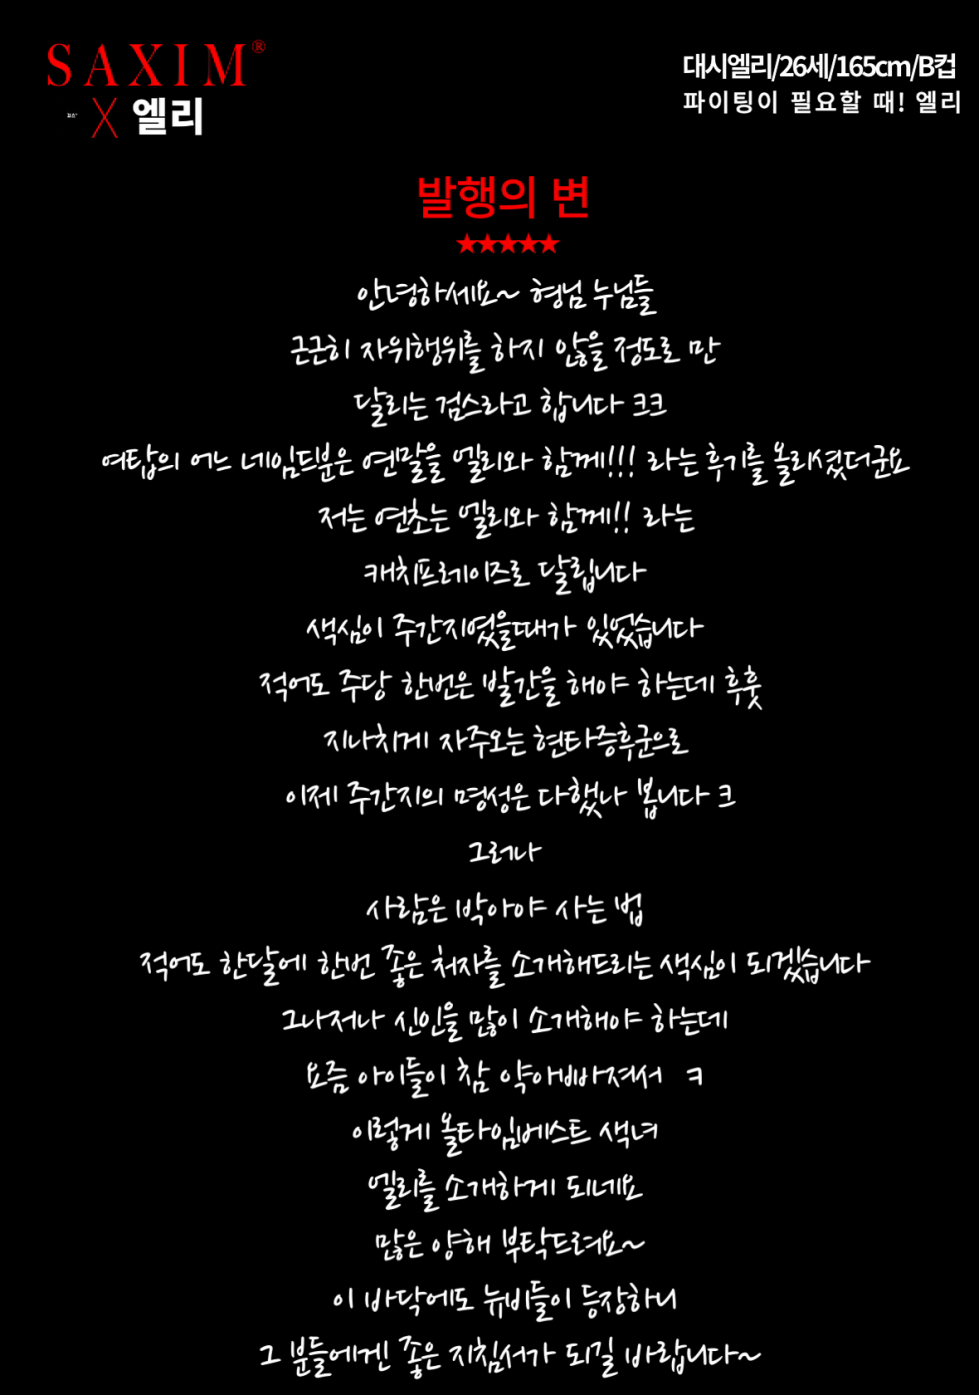 SAXIM®
X 엘리
대시엘리/26세/165cm/B컵
파이팅이 필요할 때! 엘리
발행의 변
★★★★★
안녕하세요~ 형님 누님들
근근히 자위행위를 하지 않을 정도로 만
달리는 검스라고 합니다 크크
여탑의 어느 네임드분은 연말을 엘리와 함께!!! 라는 후기를 올리셨더군요
저는 연초는 엘리와 함께!! 라는
캐치프레이즈로 달립니다
색심이 주간지였을때가 있었습니다
적어도 주당 한번은 발간을 해야 하는데 후훗
지나치게 자주오는 현타증후군으로
이제 주간지의 명성은 다했나 봅니다 크
그러나
사람은 박아야 사는 법
적어도 한달에 한번 좋은 처자를 소개해드리는 색심이 되겠습니다
그나저나 신인을 많이 소개해야 하는데
요즘 아이들이 참 약아빠져서 ㅋ
이렇게 올타임베스트 색녀
엘리를 소개하게 되네요
많은 양해 부탁드려요~
이 바닥에도 뉴비들이 등장하니
그 분들에겐 좋은 지침서가 되길 바랍니다~